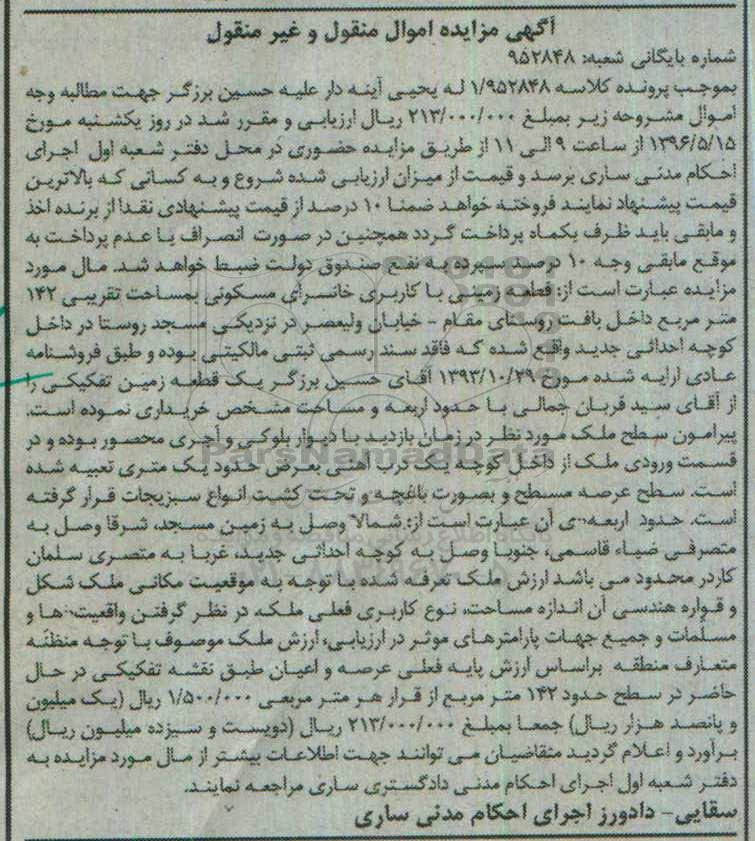 آگهی مزایده اموال منقول و غیر منقول
شماره بایگانی شعبه: ۹۵۲۸۴۸
بموجب پرونده کلاسه ۱/۹۵۲۸۴۸ له یحیی آینه دار علیه حسین برزگر جهت مطالبه وجه
اموال مشروحه زیر بمبلغ ۲۱۳/۰۰۰/۰۰۰ ریال ارزیابی و مقرر شد در روز یکشنبه مورخ
۱۳۹۶/۵/۱۵ از ساعت ۹ الی ۱۱ از طریق مزایده حضوری در محل دفتر شعبه اول اجرای
احکام مدنی ساری برسد و قیمت از میزان ارزیابی شده شروع و به کسانی که بالاترین
قیمت پیشنهاد نمایند فروخته خواهد ضمنا ۱۰ درصد از قیمت پیشنهادی نقدا از برنده اخذ
و مابقی باید ظرف یکماه پرداخت گردد همچنین در صورت انصراف یا عدم پرداخت به
موقع مابقی وجه ۱۰ درصد سپرده به نفع صندوق دولت ضبط خواهد شد. مال مورد
مزایده عبارت است از: قطعه زمینی با کاربری خانسرای مسکونی بمساحت تقریبی ۱۴۲
متر مربع داخل بافت روستای مقام - خیابان ولیعصر در نزدیکی مسجد روستا در داخل
کوچه احداثی جدید واقع شده که فاقد سند رسمی ثبتی مالکیتی بوده و طبق فروشنامه
عادی ارایه شده مورخ ۱۳۹۳/۱۰/۲۹ آقای حسین برزگر یک قطعه زمین تفکیکی را
از آقای سید قربان جمالی با حدود اربعه و مساحت مشخص خریداری نموده است.
پیرامون سطح ملک مورد نظر در زمان بازدید با دیوار بلوکی و آجری محصور بوده و در
قسمت ورودی ملک از داخل کوچه یک درب آهنی بعرض حدود یک متری تعبیه شده
است. سطح عرصه مسطح و بصورت باغچه و تحت کشت انواع سبزیجات قرار گرفته
است. حدود اربعه ی آن عبارت است از: شمالا وصل به زمین مسجد، شرقا وصل به
متصرفی ضیاء قاسمی، جنوبا وصل به کوچه احداثی جدید، غربا به متصری سلمان
کاردر محدود می باشد ارزش ملک تعرفه شده با توجه به موقعیت مکانی ملک شکل
و قواره هندسی آن اندازه مساحت، نوع کاربری فعلی ملک، در نظر گرفتن واقعیت ها و
مسلمات و جمیع جهات پارامترهای موثر در ارزیابی، ارزش ملک موصوف با توجه منظنه
متعارف منطقه براساس ارزش پایه فعلی عرصه و اعیان طبق نقشه تفکیکی در حال
حاضر در سطح حدود ۱۴۲ متر مربع از قرار هر متر مربعی ۱/۵۰۰/۰۰۰ ریال (یک میلیون
و پانصد هزار ریال) جمعا بمبلغ ۲۱۳/۰۰۰/۰۰۰ ریال (دویست و سیزده میلیون ریال)
برآورد و اعلام گردید متقاضیان می توانند جهت اطلاعات بیشتر از مال مورد مزایده به
دفتر شعبه اول اجرای احکام مدنی دادگستری ساری مراجعه نمایند.
سقایی- دادورز اجرای احکام مدنی ساری
ParsNamadData